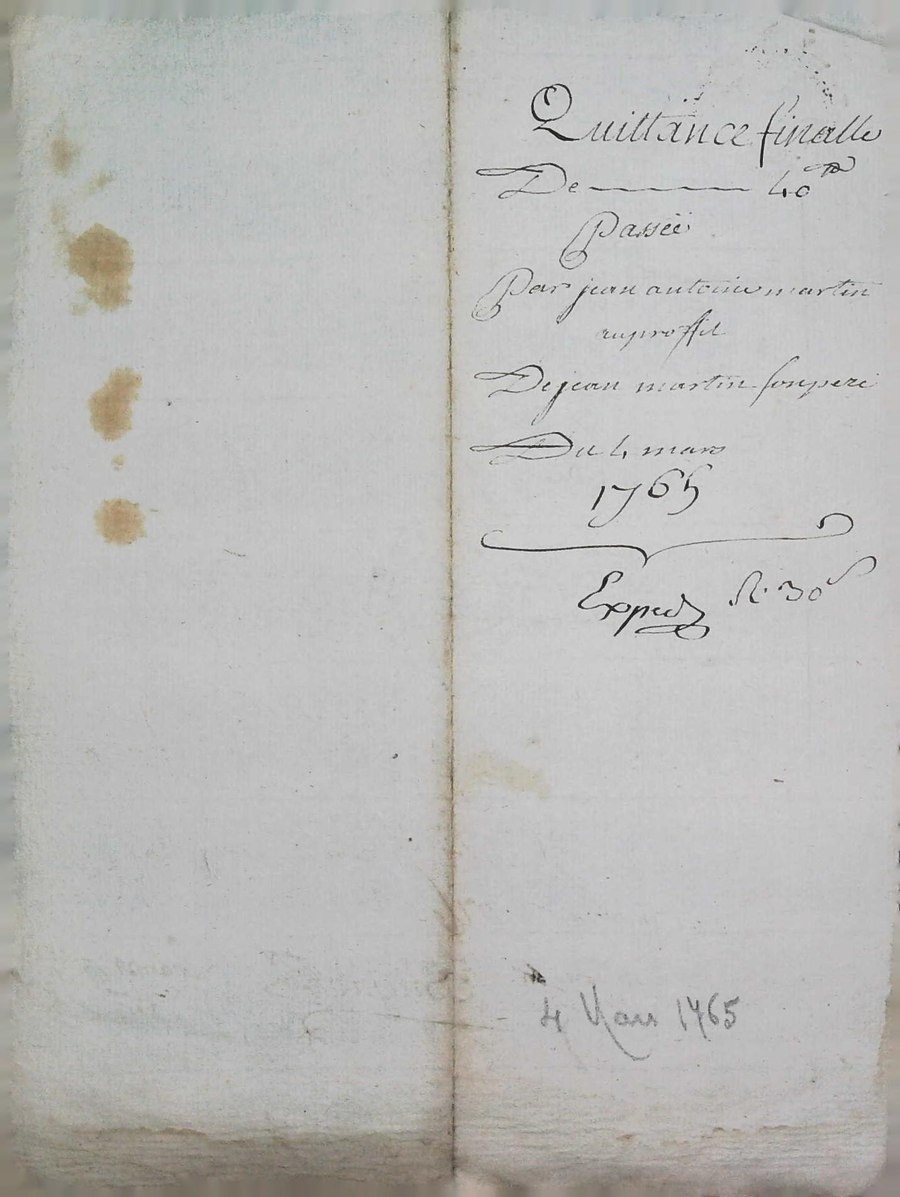 Quittance finalle
De 40 ₶
Passée
Par jean antoine martin
auproffit
De jean martin son pere
Du 4 mars
1765
Exped
4 Mars 1765